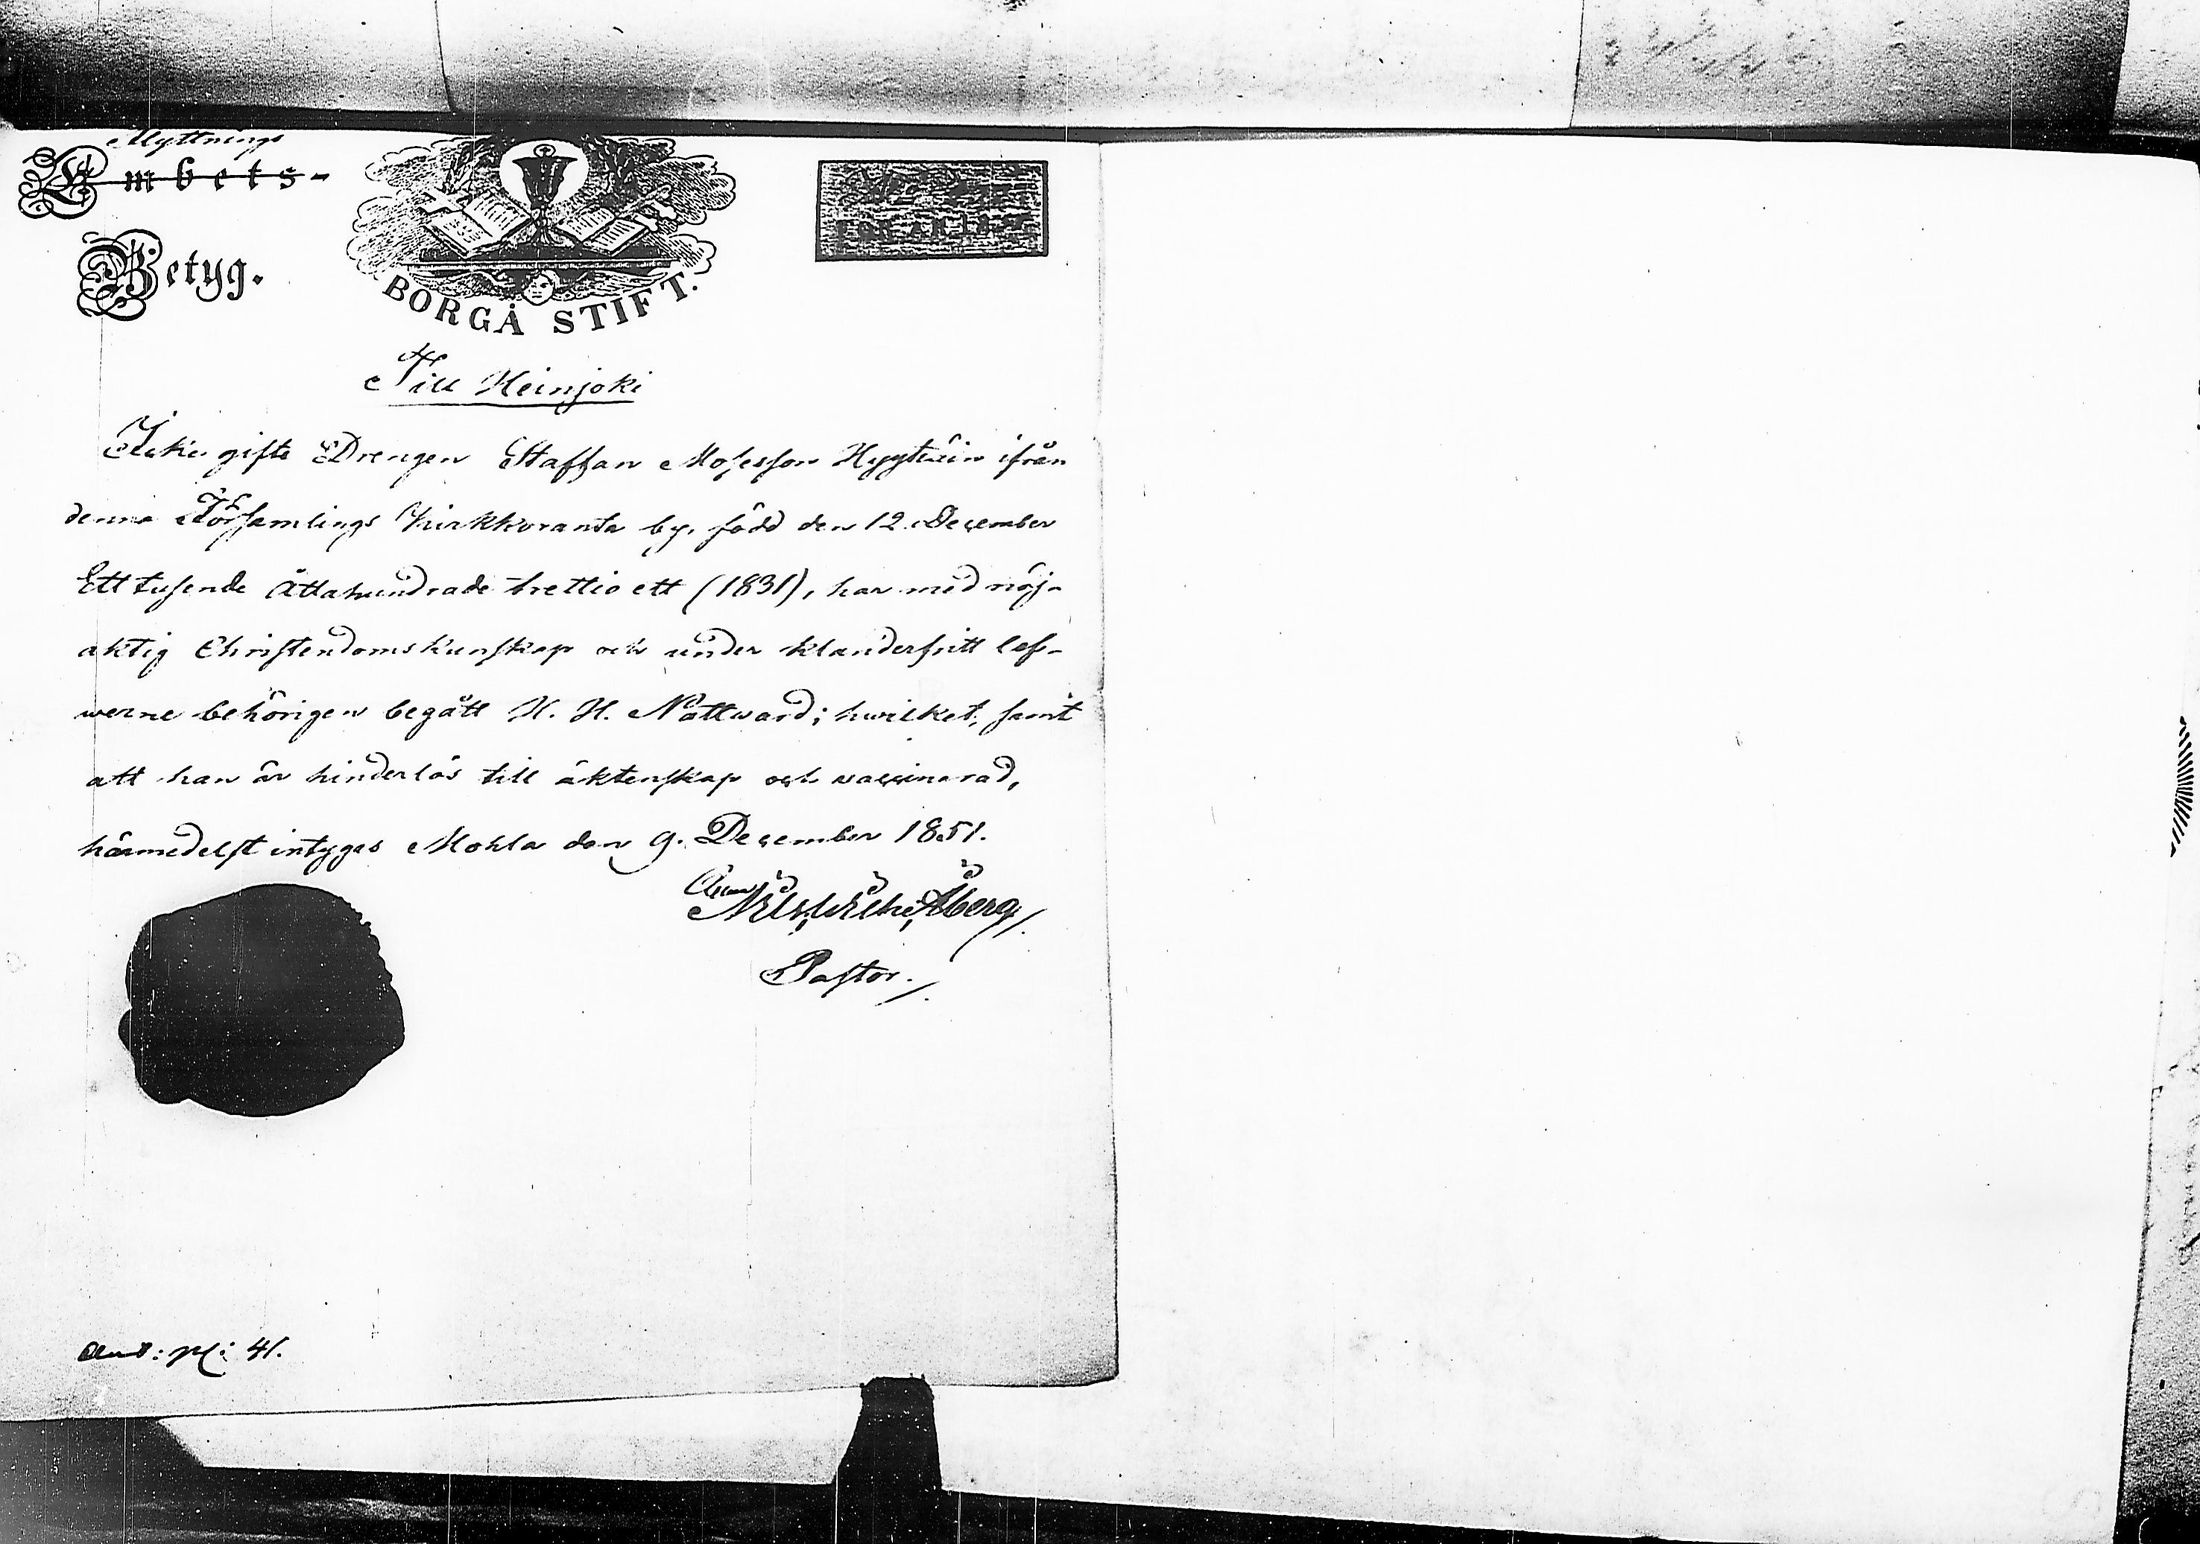 Flyttnings
Embets-
Betyg.
BORGÅ STIFT.
FÖR ÅR 1851.
Till Heinjoki
Icke gifte Drengen Staffan Mosesson Hyytiäin ifrån
denna Församlings Kirkkoranta by, född den 12 December
Ett tusende Åttahundrade trettio ett (1831), har med nöj-
aktig Christendomskunskap och under klanderfritt lef-
werne behörigen begått H. H. Nattward; hwilket, samt
att han är hinderlös till äktenskap och vaccinerad,
härmedelst intygas Mohla den 9. December 1851.
Åberg
Pastor.
41.